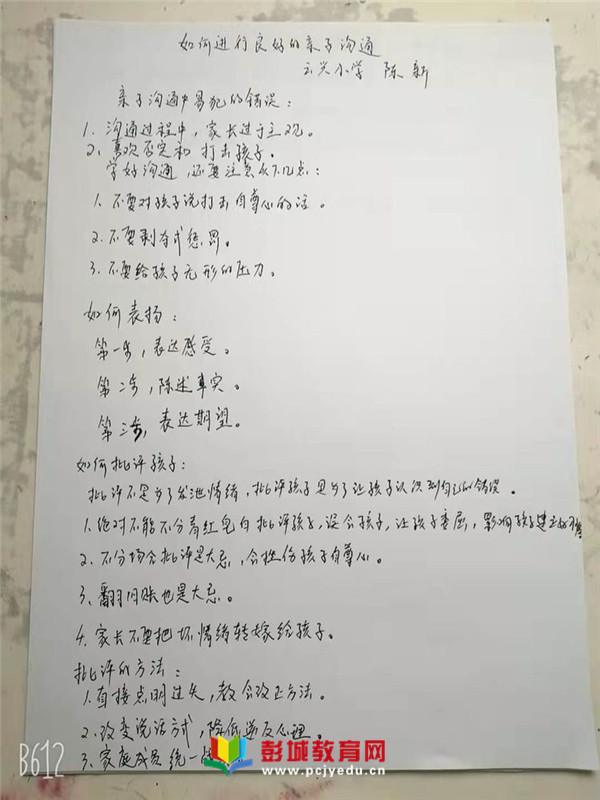 如何进行良好的亲子沟通
云兴小学 陈新
亲子沟通中易犯的错误：
1. 沟通过程中，家长过于主观。
2. 喜欢否定和打击孩子。
学好沟通，还要注意以下几点：
1. 不要对孩子说打击自尊心的话。
2. 不要剥夺式惩罚。
3. 不要给孩子无形的压力。
如何表扬：
第一步，表达感受。
第二步，陈述事实。
第三步，表达期望。
如何批评孩子：
批评不是为了发泄情绪，批评孩子是为了让孩子认识到自己的错误。
1. 绝对不能不分青红皂白批评孩子，误会孩子，让孩子委屈，影响孩子建立
2. 不分场合批评是大忌，会挫伤孩子自尊心。
3、翻旧账也是大忌。
4. 家长不要把坏情绪转嫁给孩子。
批评的方法：
1. 直接点明过失，教会改正方法。
2. 改变说话方式，降低逆反心理。
3、家庭成员统一
彭城教育网
www.pcjyedu.cn
B612